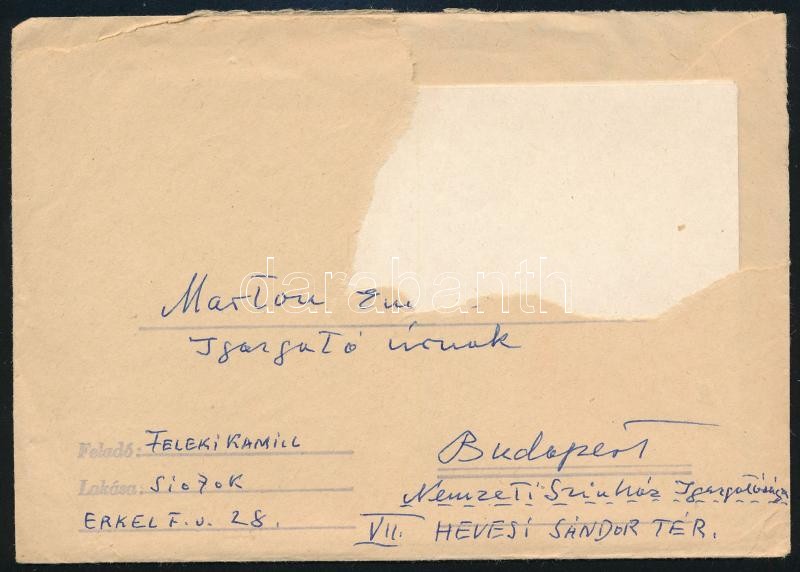 Marton
Igazgató úrnak
Feladó: FELEKI KAMILL
Lakása: Siófok
ERKEL F. u. 28.
Budapest
Nemzeti Színház Igazgatósága
VII. HEVESI SÁNDOR TÉR.
darabanth